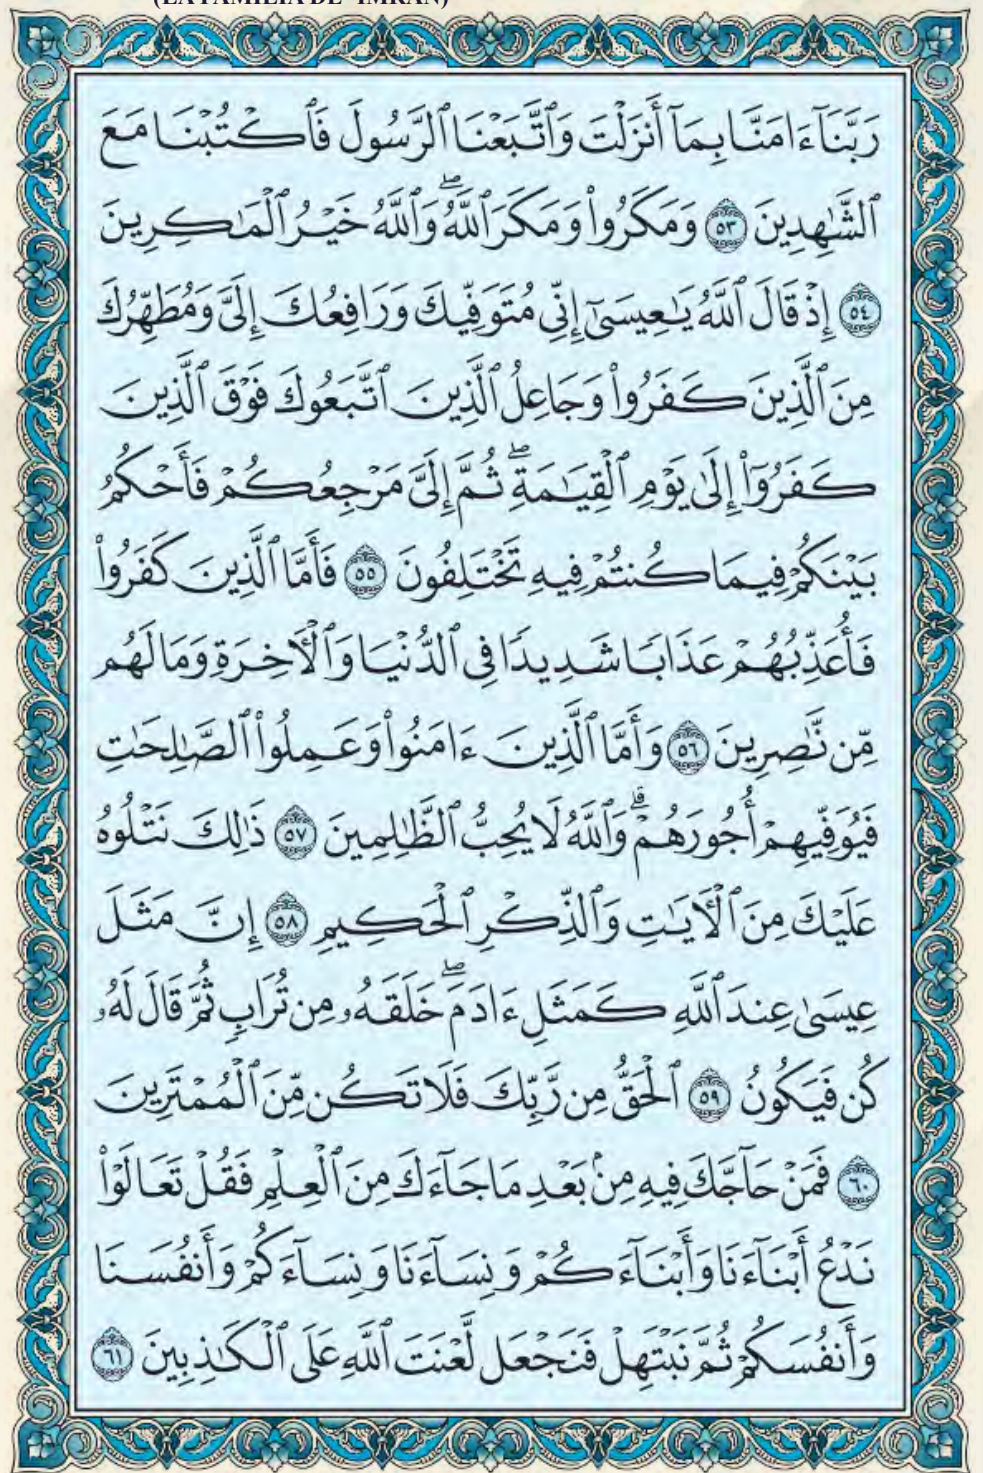 (LA FAMILIA DE ‘IMRÁN)
رَبَّنَآ ءَامَنَّا بِمَآ أَنزَلْتَ وَٱتَّبَعْنَا ٱلرَّسُولَ فَٱكْتُبْنَا مَعَ
ٱلشَّٰهِدِينَ ٥٣ وَمَكَرُوا۟ وَمَكَرَ ٱللَّهُ ۖ وَٱللَّهُ خَيْرُ ٱلْمَٰكِرِينَ
٥٤ إِذْ قَالَ ٱللَّهُ يَٰعِيسَىٰٓ إِنِّى مُتَوَفِّيكَ وَرَافِعُكَ إِلَىَّ وَمُطَهِّرُكَ
مِنَ ٱلَّذِينَ كَفَرُوا۟ وَجَاعِلُ ٱلَّذِينَ ٱتَّبَعُوكَ فَوْقَ ٱلَّذِينَ
كَفَرُوٓا۟ إِلَىٰ يَوْمِ ٱلْقِيَٰمَةِ ۖ ثُمَّ إِلَىَّ مَرْجِعُكُمْ فَأَحْكُمُ
بَيْنَكُمْ فِيمَا كُنتُمْ فِيهِ تَخْتَلِفُونَ ٥٥ فَأَمَّا ٱلَّذِينَ كَفَرُوا۟
فَأُعَذِّبُهُمْ عَذَابًا شَدِيدًا فِى ٱلدُّنْيَا وَٱلْءَاخِرَةِ وَمَا لَهُم
مِّن نَّٰصِرِينَ ٥٦ وَأَمَّا ٱلَّذِينَ ءَامَنُوا۟ وَعَمِلُوا۟ ٱلصَّٰلِحَٰتِ
فَيُوَفِّيهِمْ أُجُورَهُمْ ۗ وَٱللَّهُ لَا يُحِبُّ ٱلظَّٰلِمِينَ ٥٧ ذَٰلِكَ نَتْلُوهُ
عَلَيْكَ مِنَ ٱلْءَايَٰتِ وَٱلذِّكْرِ ٱلْحَكِيمِ ٥٨ إِنَّ مَثَلَ
عِيسَىٰ عِندَ ٱللَّهِ كَمَثَلِ ءَادَمَ ۖ خَلَقَهُۥ مِن تُرَابٍ ثُمَّ قَالَ لَهُۥ
كُن فَيَكُونُ ٥٩ ٱلْحَقُّ مِن رَّبِّكَ فَلَا تَكُن مِّنَ ٱلْمُمْتَرِينَ
٦٠ فَمَنْ حَآجَّكَ فِيهِ مِنۢ بَعْدِ مَا جَآءَكَ مِنَ ٱلْعِلْمِ فَقُلْ تَعَالَوْا۟
نَدْعُ أَبْنَآءَنَا وَأَبْنَآءَكُمْ وَنِسَآءَنَا وَنِسَآءَكُمْ وَأَنفُسَنَا
وَأَنفُسَكُمْ ثُمَّ نَبْتَهِلْ فَنَجْعَل لَّعْنَتَ ٱللَّهِ عَلَى ٱلْكَٰذِبِينَ ٦١